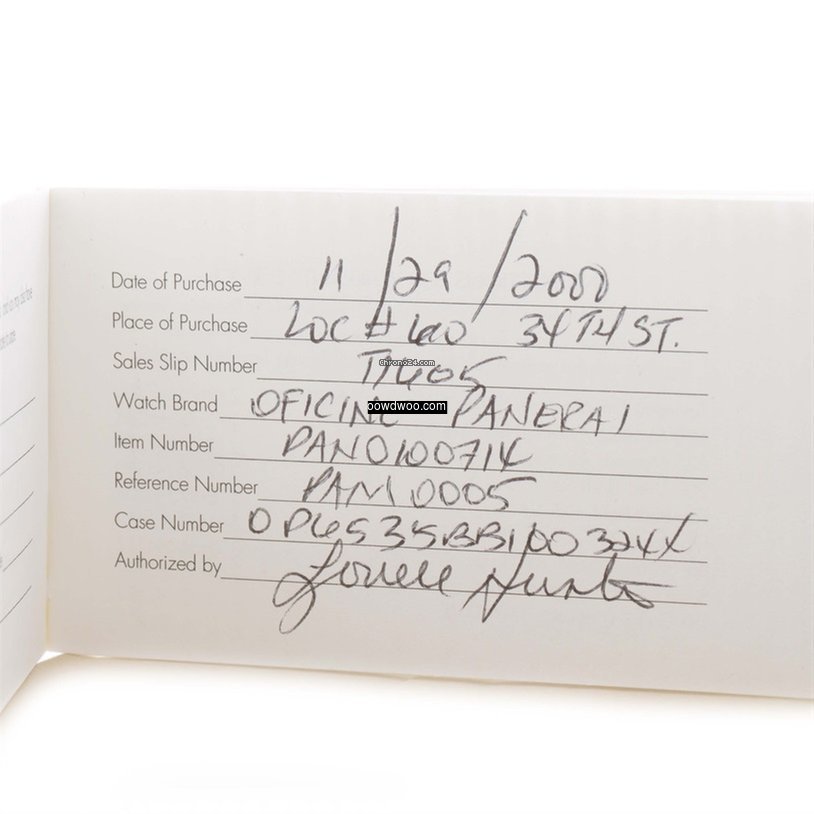 Date of Purchase 11/29/2000
Place of Purchase LOC # 60 34TH ST.
chrono24.com
Sales Slip Number
Watch Brand OFICINE PANERAI
oowdwoo.com
Item Number PAN0100714
Reference Number PAM0005
Case Number OP6535BB1003244
Authorized by